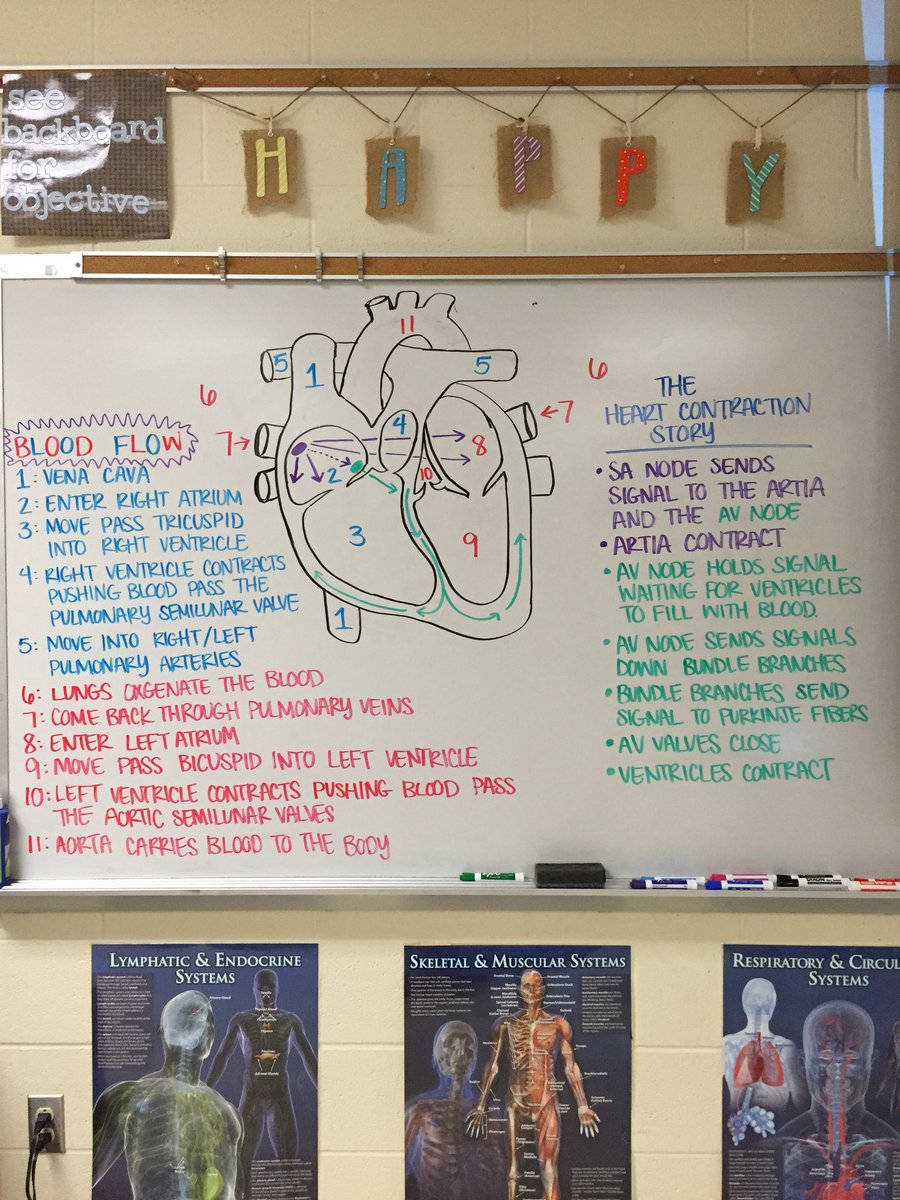 see
backboard
for
objective
H A P P Y
11
5
1
5
6
6
7
7
4
8
2
10
3
9
1
BLOOD FLOW
1: VENA CAVA
2: ENTER RIGHT ATRIUM
3: MOVE PASS TRICUSPID
INTO RIGHT VENTRICLE
4: RIGHT VENTRICLE CONTRACTS
PUSHING BLOOD PASS THE
PULMONARY SEMILUNAR VALVE
5: MOVE INTO RIGHT/LEFT
PULMONARY ARTERIES
6: LUNGS OXGENATE THE BLOOD
7: COME BACK THROUGH PULMONARY VEINS
8: ENTER LEFT ATRIUM
9: MOVE PASS BICUSPID INTO LEFT VENTRICLE
10: LEFT VENTRICLE CONTRACTS PUSHING BLOOD PASS
THE AORTIC SEMILUNAR VALVES
11: AORTA CARRIES BLOOD TO THE BODY
THE
HEART CONTRACTION
STORY
• SA NODE SENDS
SIGNAL TO THE ARTIA
AND THE AV NODE
• ARTIA CONTRACT
• AV NODE HOLDS SIGNAL
WAITING FOR VENTRICLES
TO FILL WITH BLOOD.
• AV NODE SENDS SIGNALS
DOWN BUNDLE BRANCHES
• BUNDLE BRANCHES SEND
SIGNAL TO PURKINJE FIBERS
• AV VALVES CLOSE
• VENTRICLES CONTRACT
LYMPHATIC & ENDOCRINE
SYSTEMS
SKELETAL & MUSCULAR SYSTEMS
RESPIRATORY & CIRCU
SYSTEMS